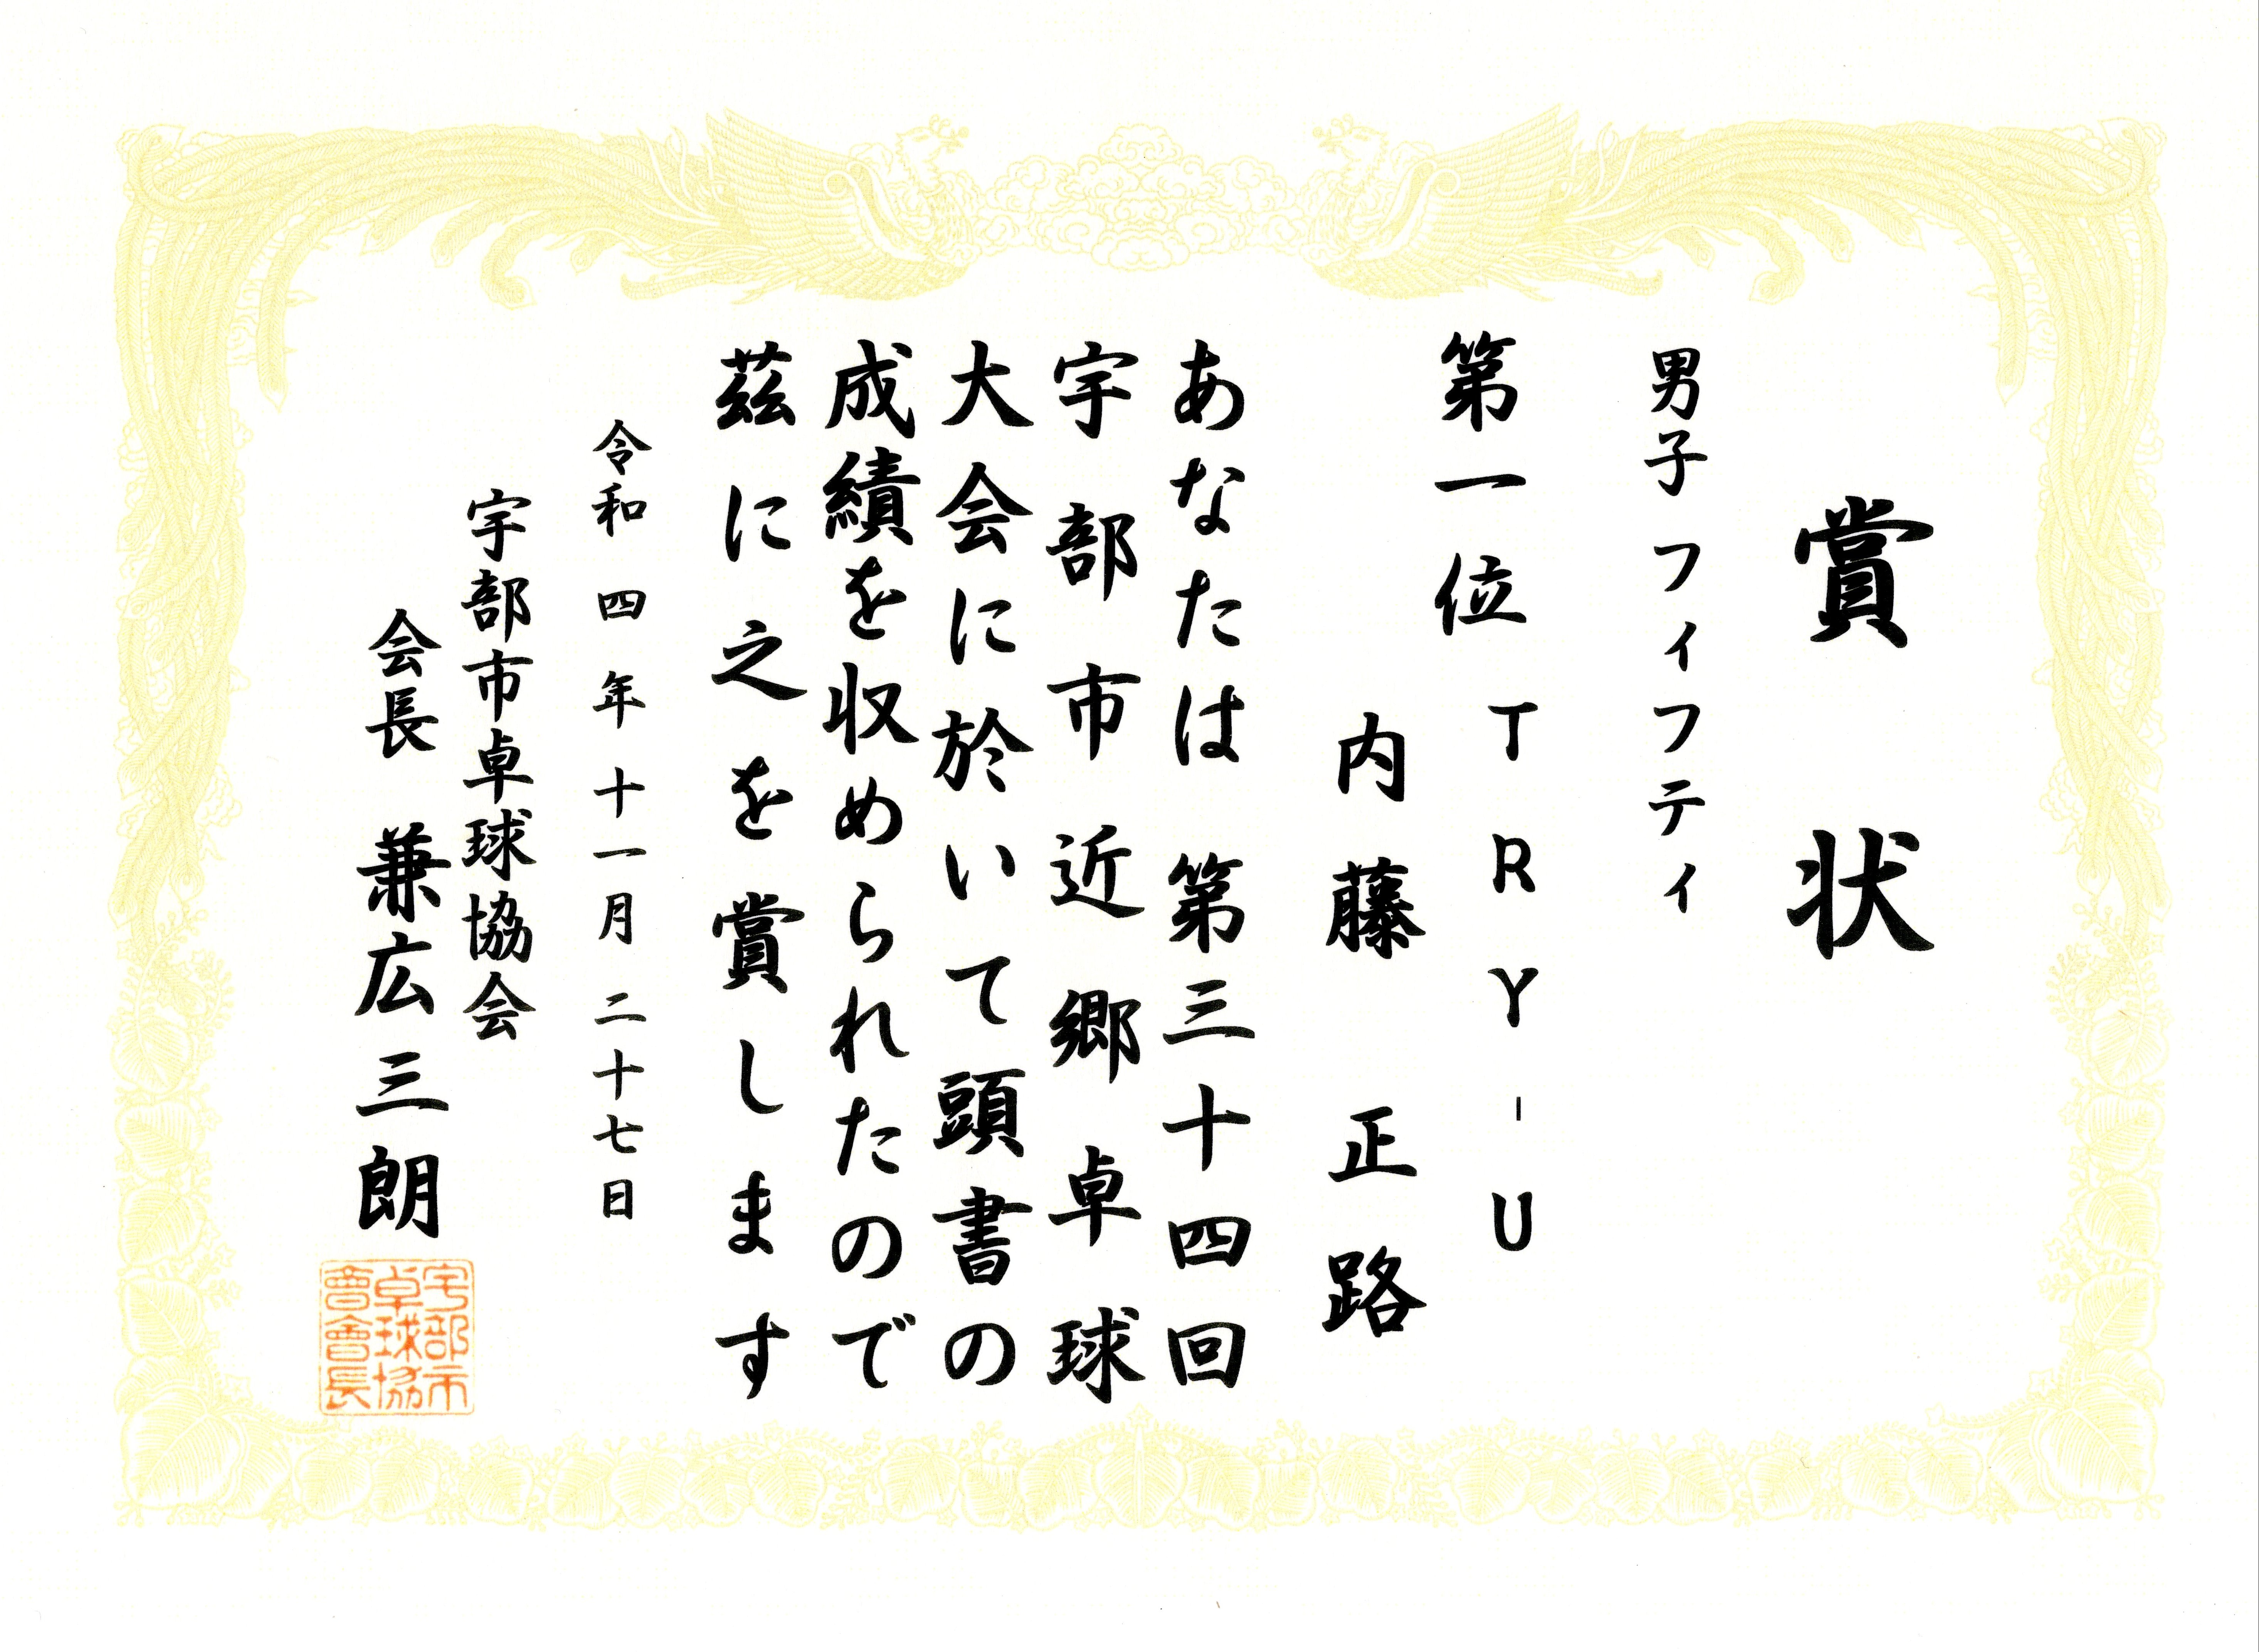 賞状
男子フィフティ
第一位 TRY-U
内藤 正路
あなたは 第三十四回
宇部市近郷卓球
大会に於いて頭書の
成績を収められたので
茲に之を賞します
令和四年十一月二十七日
宇部市卓球協会
会長 兼広三朗
宇部市
卓球協
會會長